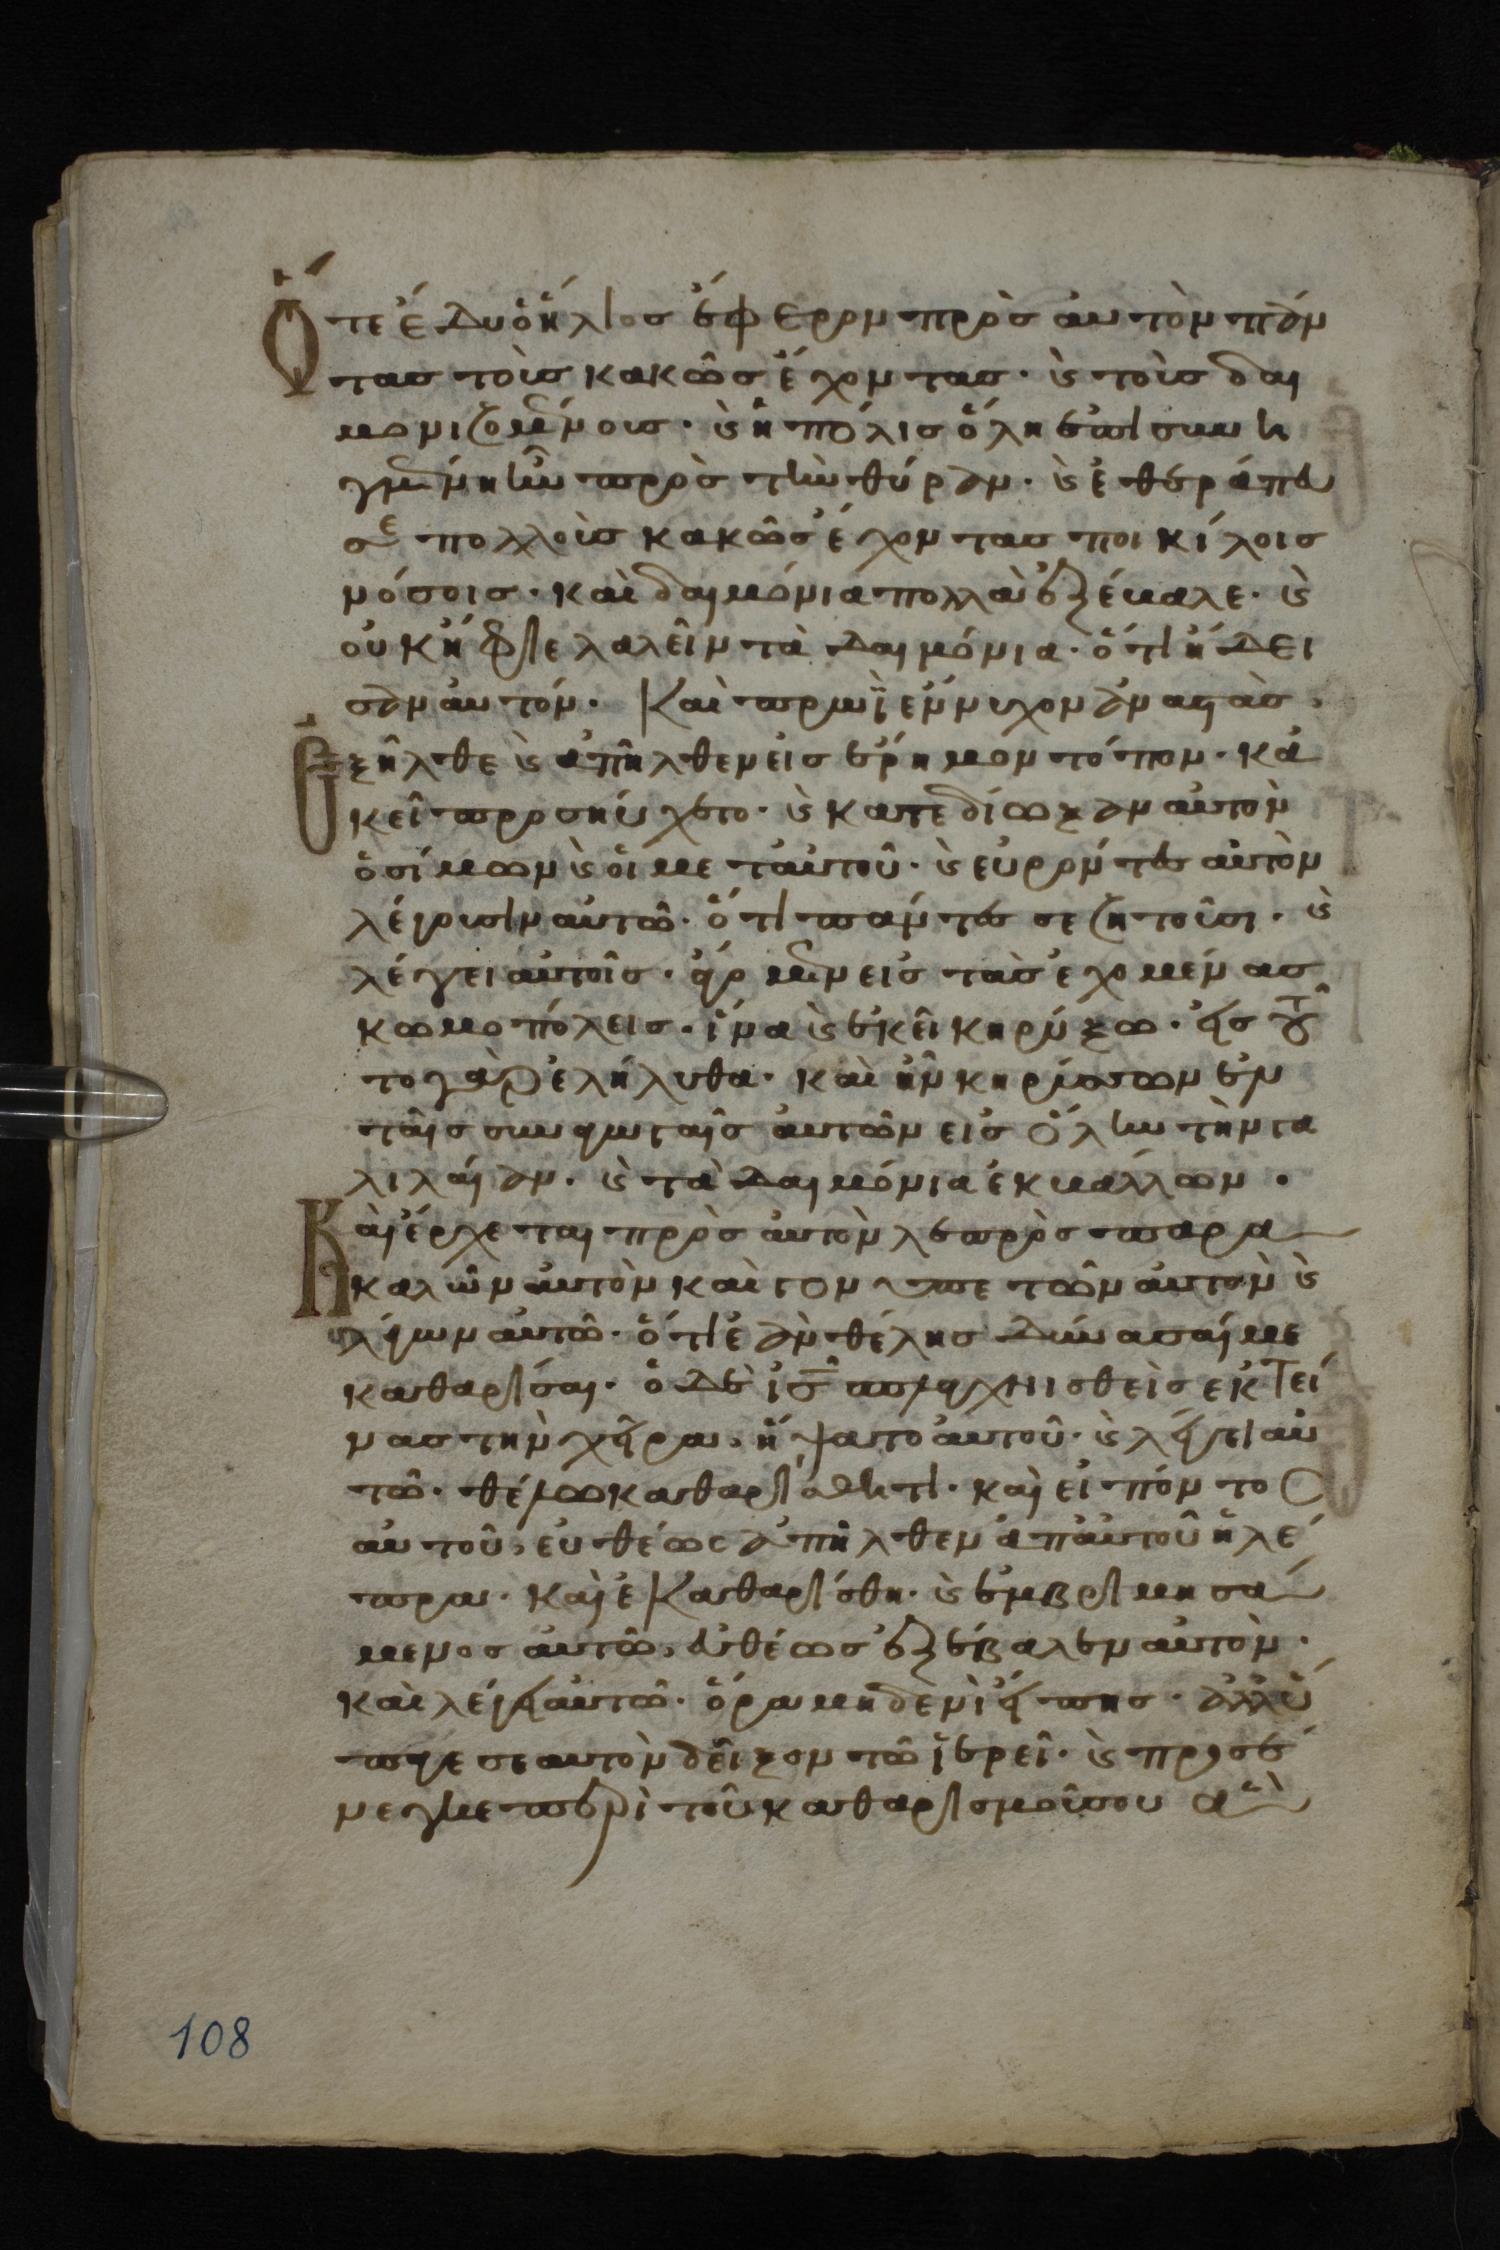 Ὅτε ἔδυ ὁ ἥλιος ἔφερον πρὸς αὐτὸν πάν
τας τοὺς κακῶς ἔχοντας· καὶ τοὺς δαι
μονιζομένους· καὶ ἡ πόλις ὅλη ἐπισυνη
γμένη ἦν πρὸς τὴν θύραν· καὶ ἐθεράπευ
σε πολλοὺς κακῶς ἔχοντας ποικίλοις
νόσοις· καὶ δαιμόνια πολλὰ ἐξέβαλε· καὶ
οὐκ ἤφιε λαλεῖν τὰ δαιμόνια· ὅτι ἤδει
σαν αὐτόν· Καὶ πρωῒ ἔννυχον ἀναστὰς
ἐξῆλθε καὶ ἀπῆλθεν εἰς ἔρημον τόπον· κἀ
κεῖ προσηύχετο· καὶ κατεδίωξαν αὐτὸν
ὁ σίμων καὶ οἱ μετ αὐτοῦ· καὶ εὑρόντες αὐτὸν
λέγουσιν αὐτῶ· ὅτι πάντες σε ζητοῦσι· καὶ
λέγει αὐτοῖς· ἄγωμεν εἰς τὰς ἐχομένας
κωμοπόλεις· ἵνα καὶ ἐκεῖ κηρύξω· εἰς τοῦ
το γὰρ ἐλήλυθα· καὶ ἦν κηρύσσων ἐν
ταῖς συναγωγαῖς αὐτῶν εἰς ὅλην τὴν γα
λιλαίαν· καὶ τὰ δαιμόνια ἐκβάλλων·
Καὶ ἔρχεται πρὸς αὐτὸν λεπρὸς παρα
καλῶν αὐτὸν καὶ γονυπετῶν αὐτὸν καὶ
λέγων αὐτῶ· ὅτι ἐὰν θέλης δύνασαί με
καθαρίσαι· ὁ δὲ ισ σπλαγχνισθεὶς ἐκτεί
νας τὴν χεῖρα, ἥψατο αὐτοῦ· καὶ λέγει αὐ
τῶ· θέλω καθαρίσθητι· καὶ εἰπόντος
αὐτοῦ, εὐθέως ἀπῆλθεν ἀπ αὐτοῦ ἡ λέ
πρα· καὶ ἐκαθαρίσθη· καὶ ἐμβριμησά
μενος αὐτῶ, εὐθέως ἐξέβαλεν αὐτὸν·
καὶ λέγει αὐτῶ· ὅρα μηδενὶ εἴπης· ἀλλ ὕ
παγε σεαυτὸν δεῖξον τῶ ἱερεῖ· καὶ προσέ
νεγκε περὶ τοῦ καθαρισμοῦ σου ἃ
108